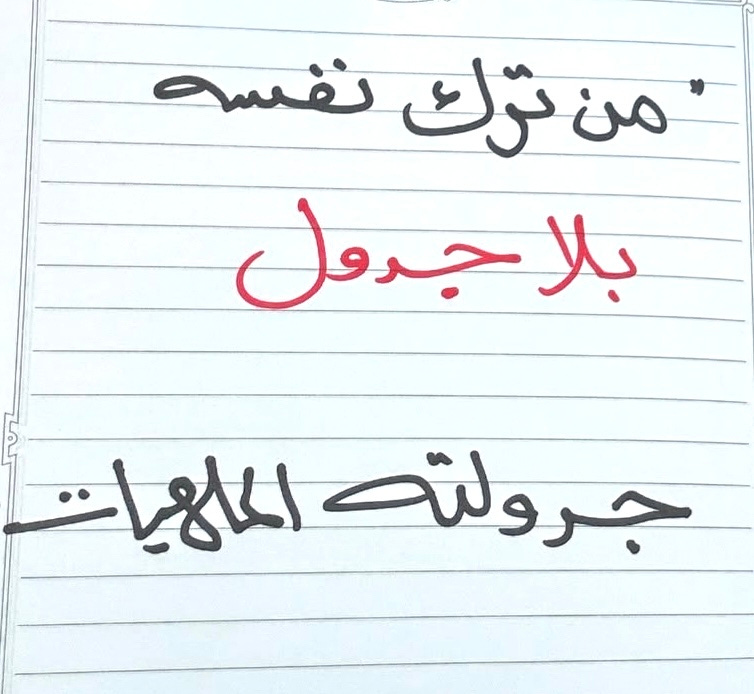 "من ترك نفسه
بلا جدول
جدولته الملهيات